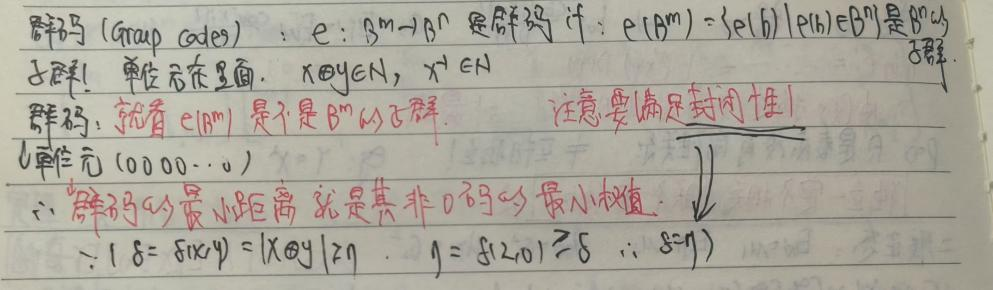 群码 (Group codes) : e: B^m→B^n 是群码 if: e(B^m) = {e(b) | e(b)∈B^n} 是B^n的子群.
子群! 单位元在里面. x⊕y∈N, x^-1 ∈N
群码: 就看 e(B^m) 是不是 B^m 的子群. 注意要满足封闭性!
↓单位元 (0000...0)
∴ 群码的最小距离 就是其非0码的最小权值.
∵ ( δ = δ(x,y) = |x⊕y| ≥η . η = δ(z,0) ≥ δ ∴ δ=η)